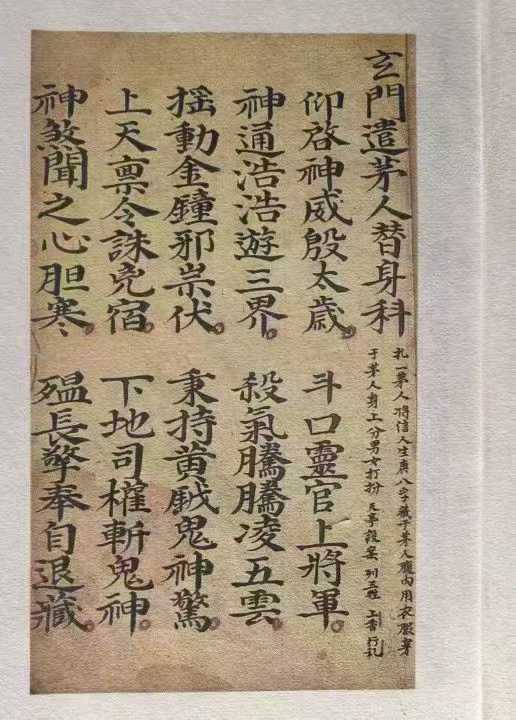 玄門遣茅人替身科
扎一茅人將信人生庚八字藏于茅人腹内用衣服穿
于茅人身上分男女打扮 天亭設案 列三牲 上香 行礼
仰啓神威殷太歲。斗口靈官上將軍。
神通浩浩遊三界。殺氣騰騰凌五雲。
揺動金鐘邪祟伏。秉持黄鉞鬼神驚。
上天禀令誅兇宿。下地司權斬鬼神。
神煞聞之心胆寒。殟長擎奉自退藏。